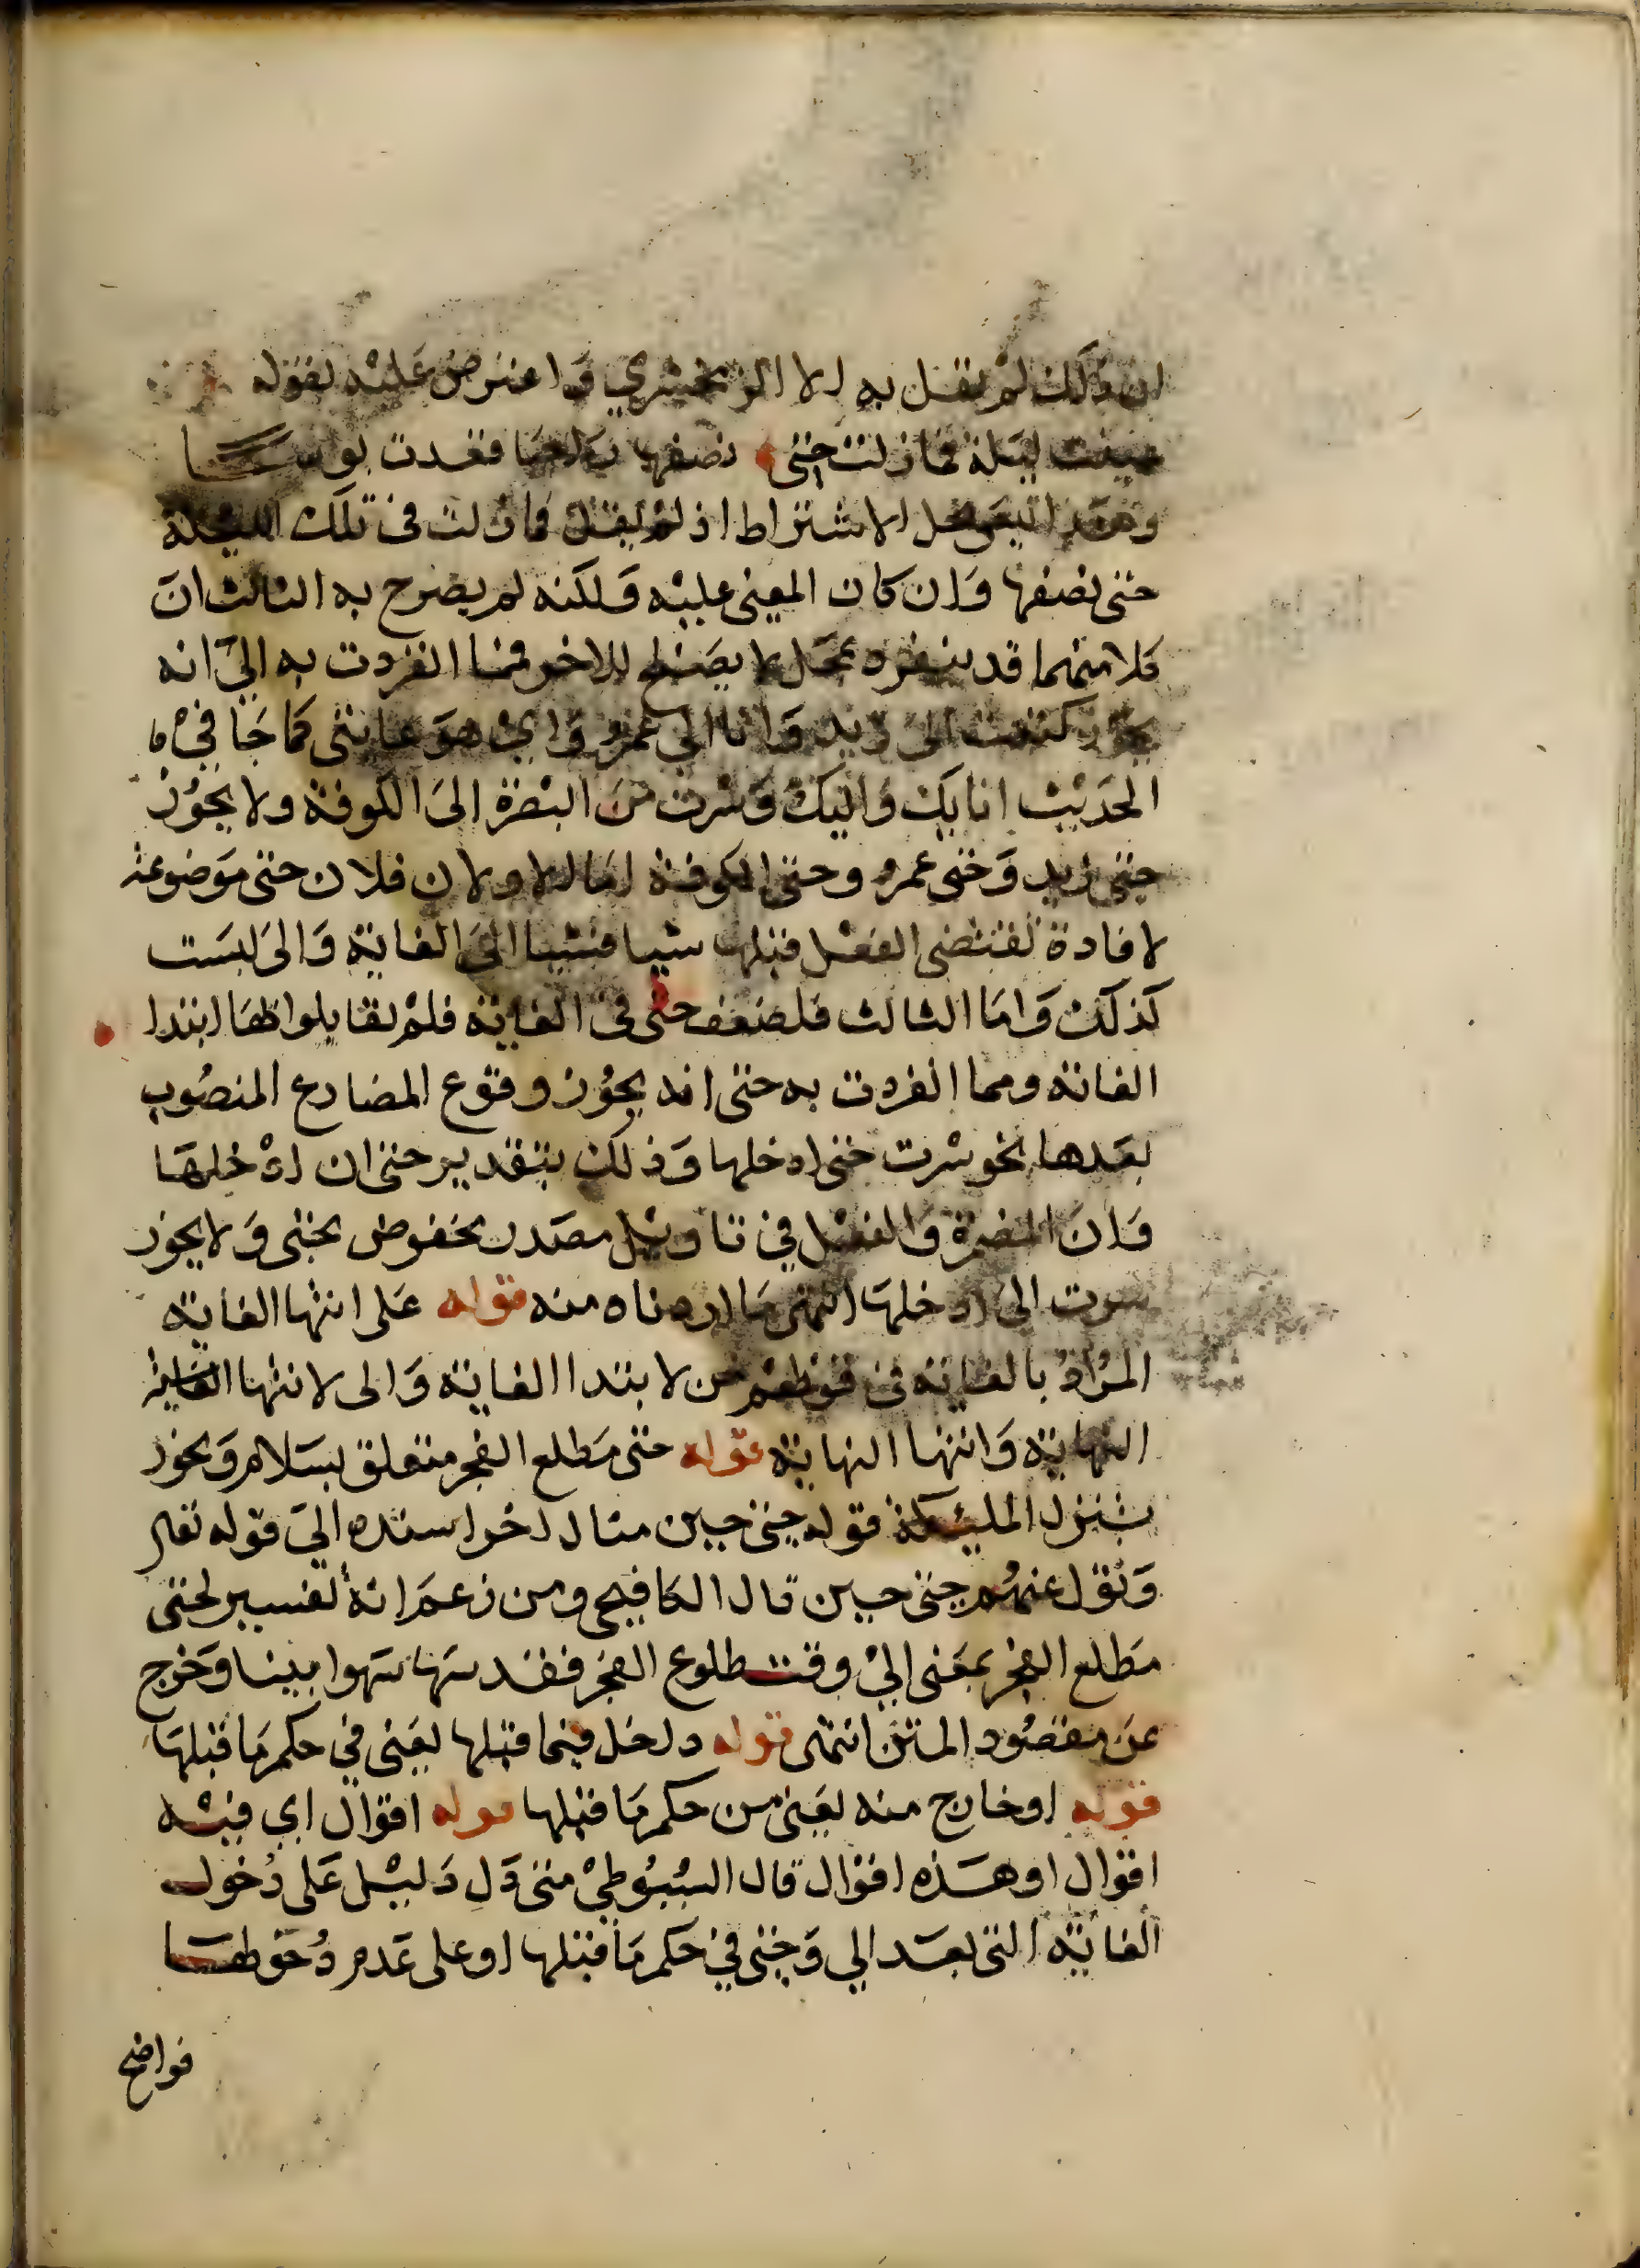 ان ذلك لم يقل به الا الزمخشري واعترض عليه بقوله
عينت ليلة فما زلت حتى نصفها راجيا فعدت يوسا
وهذا ليس محل الاشتراط اذ لم يقل فما زلت في تلك الليلة
حتى نصفها وان كان المعنى عليه ولكنه لم يصرح به الثالث ان
كلا منهما قد ينفرد بمحل لا يصلح للاخر فمما انفردت به الى انه
يجوز كتبت الى زيد وانا الى عمرو واي هو غايتي كما جا في
الحديث انا بك واليك وسرت من البصرة الى الكوفة ولا يجوز
حتى زيد وحتى عمرو وحتى الكوفة اما الاولان فلان حتى موضوعة
لافادة تقتضى الفعل قبلها شيا فشيا الى الغاية والى ليست
كذلك واما الثالث فلضعف حتى في الغاية فلم يقابلوا بها ابتدا
الغاية ومما انفردت به حتى انه يجوز وقوع المضارع المنصوب
بعدها نحو سرت حتى ادخلها وذلك بتقدير حتى ان ادخلها
وان المضمرة والفعل في تاويل مصدر مخفوض بحتى ولا يجوز
سرت الى ادخلها انتهى ما اردناه منه قوله على انتها الغاية
المراد بالغاية في قولهم من لابتدا الغاية والى لانتها الغاية
النهاية وانتها النهاية قوله حتى مطلع الفجر متعلق بسلام ويجوز
بتنزل المليكة قوله حتى حين مثال اخر اسنده الى قوله تعالى
وتول عنهم حتى حين قال الكافيجى ومن زعم انه تفسير لحتى
مطلع الفجر بمعنى الى وقت طلوع الفجر فقد سها سهوا بينا وخرج
عن مقصود المتن انتهى قوله داخل فيما قبلها يعنى في حكم ما قبلها
قوله او خارج منه يعنى من حكم ما قبلها قوله اقوال اي فيه
اقوال او هذه اقوال قال السيوطي متى دل دليل على دخول
الغاية التى بعد الى وحتى في حكم ما قبلها او على عدم دخولها
فواضح